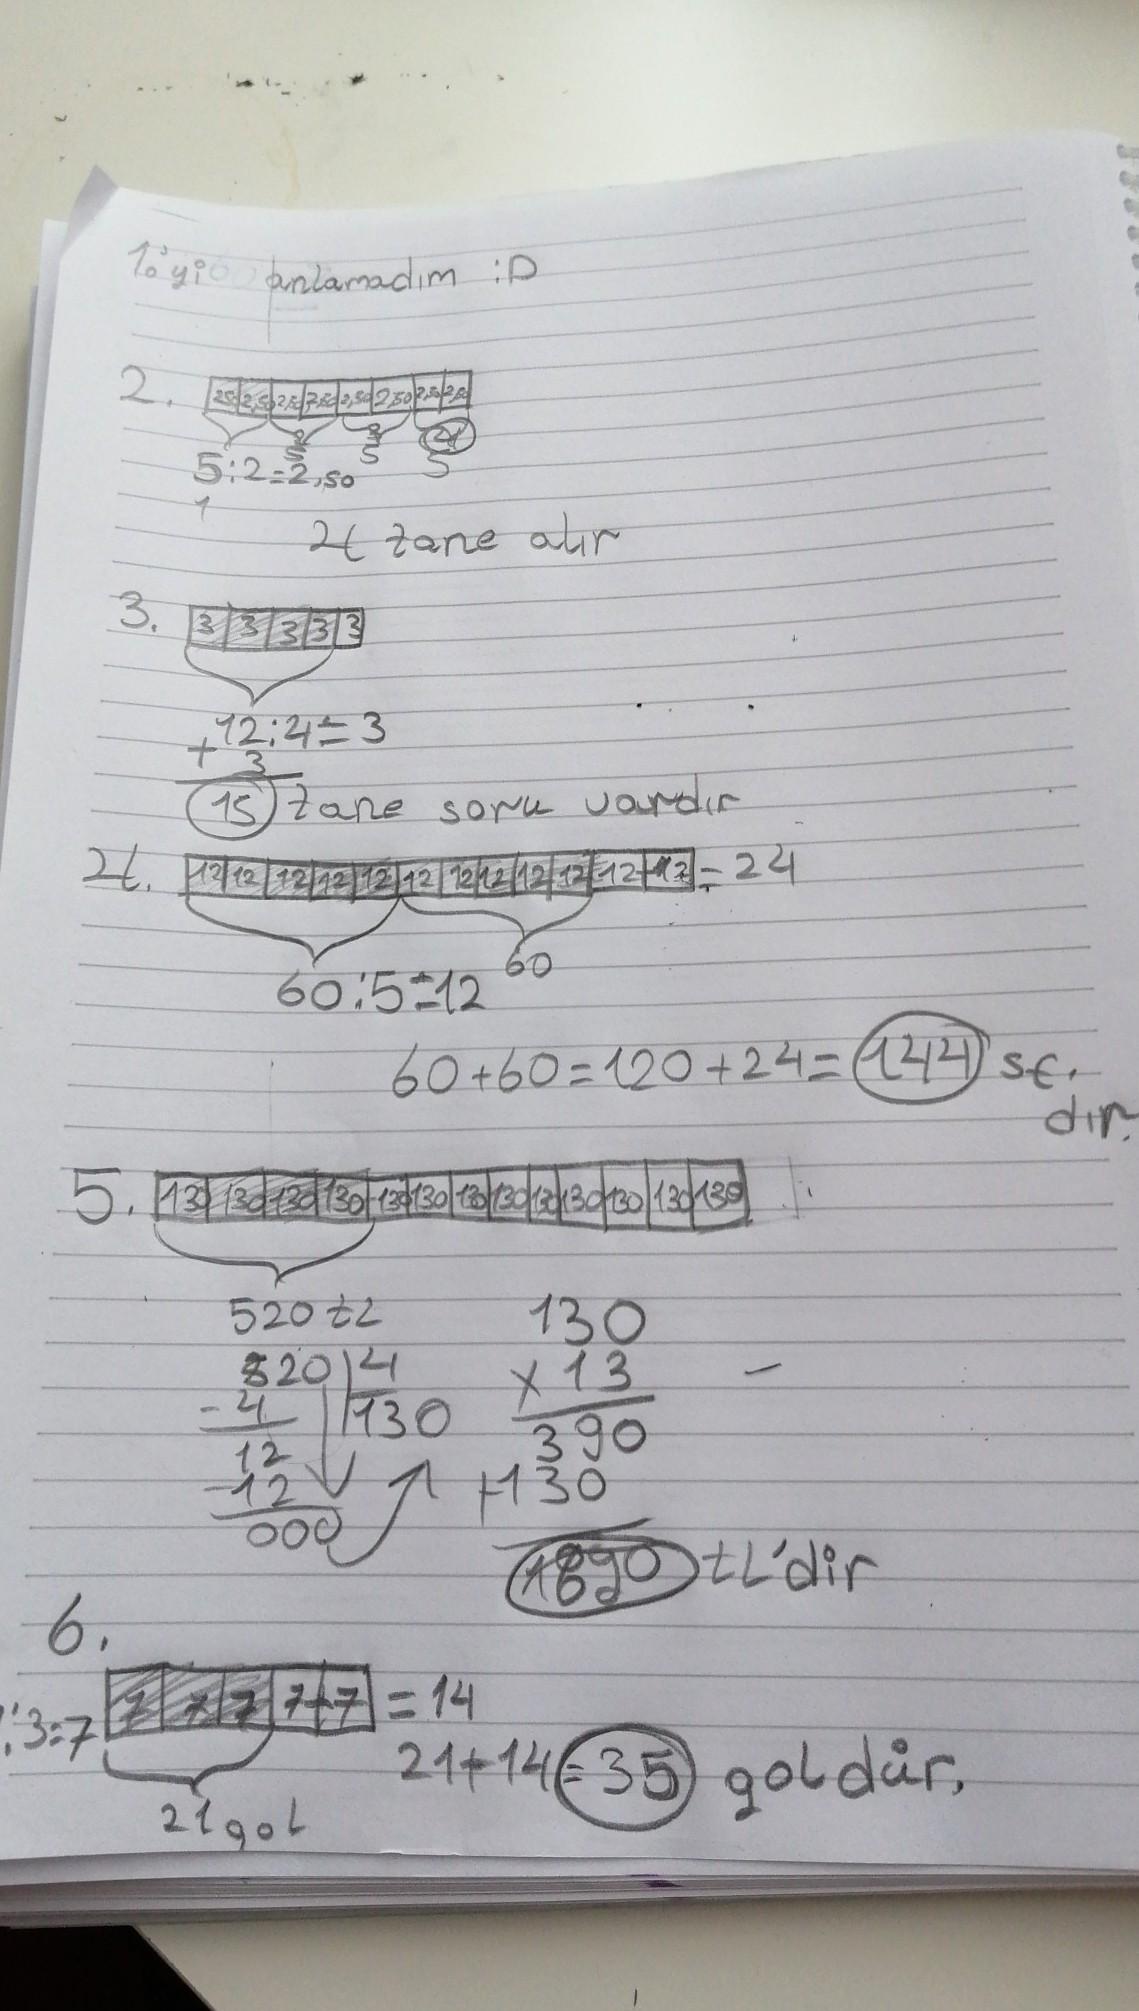 1.'yi anlamadım :D
2. 2,50 2,50 2,50 2,50 2,50 2,50 2,50 2,50
5 5 5
5:2=2,50
1
4 tane alır
3. 3 3 3 3 3
12:4=3
+ 3
15 tane soru vardır
4. 12 12 12 12 12 12 12 12 12 12 12+12=24
60
60:5=12
60+60=120+24=144 sf.
dır.
5. 130 130 130 130 130 130 130 130 130 130 130 130 130
520 tL 130
520 4 x 13
-4 130 390
12 +130
-12
000 1690 tL'dir
6.
:3=7 7 7 7 7+7 =14
21+14=35 goldür.
21 gol